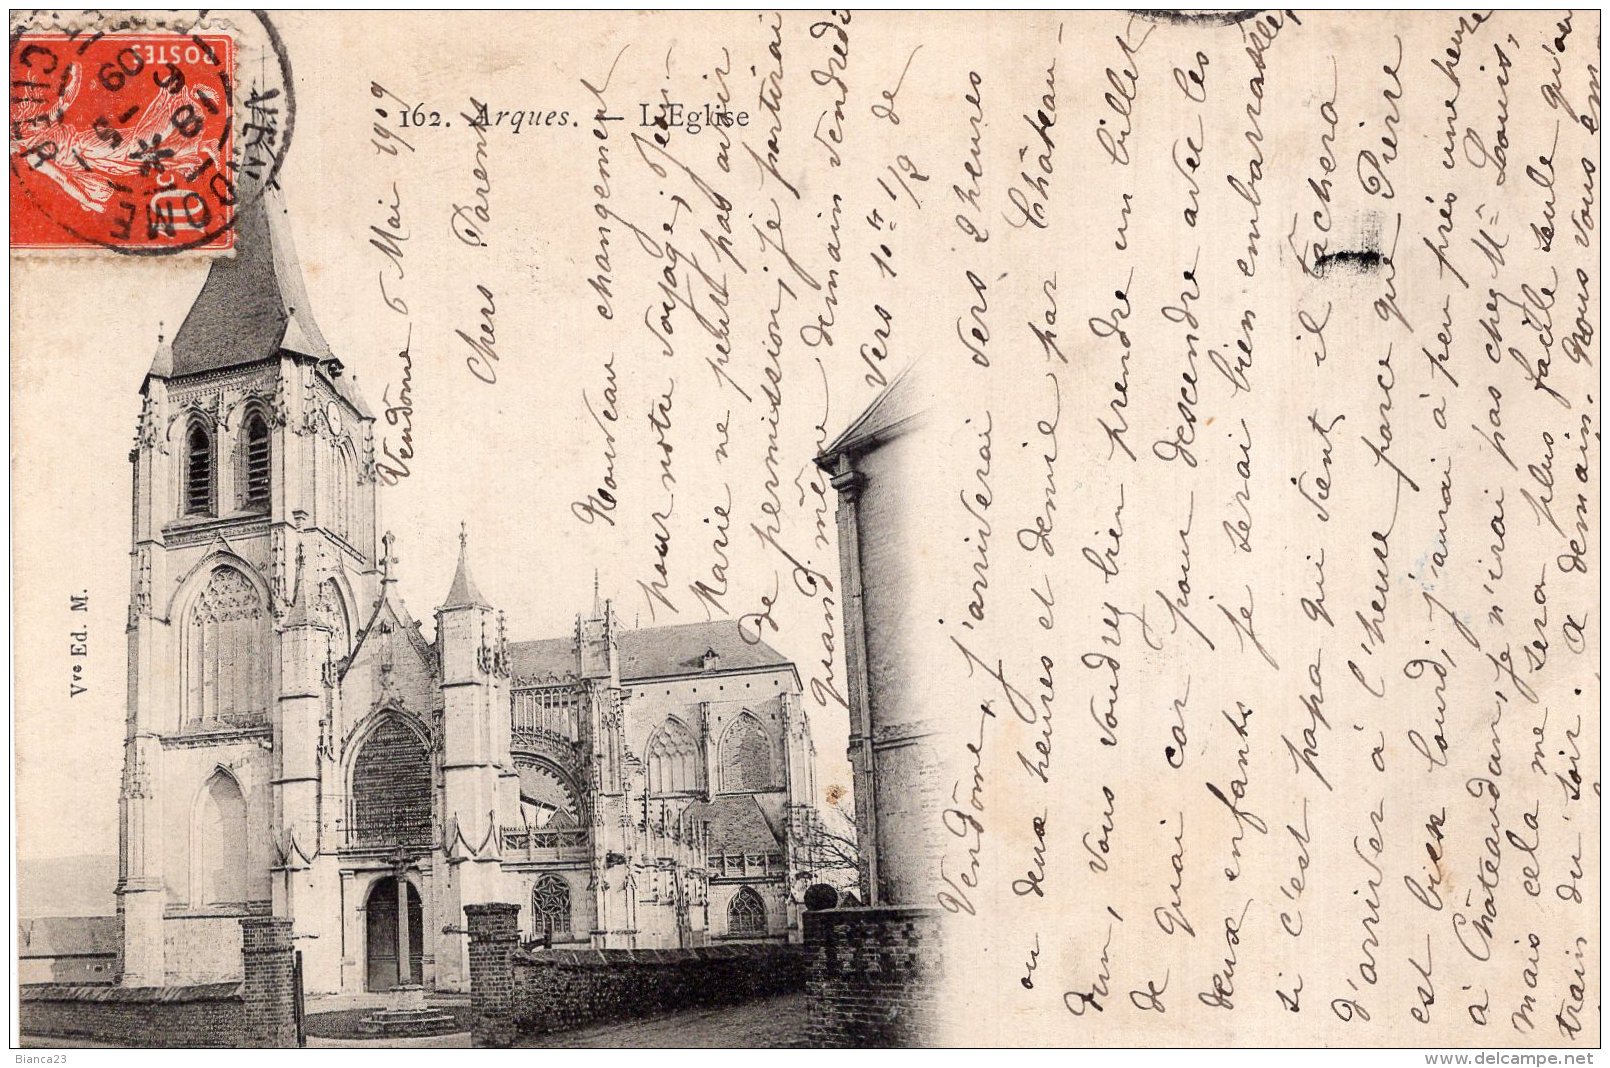 162. Arques. — L'Eglise
Vve Ed. M.
POSTES
10
VENDOME
LOIR-ET-CHER
6 -5 09
Vendôme 6 Mai 1909
Chers Parents
Nouveau changement
pour notre voyage; Jeu
Marie ne peut pas avoir
de permission, je partirai
quand même demain vendredi
vers 10h 1/2 de
Vendôme, j'arriverai vers 2 heures
ou deux heures et demie par Château-
dun, vous voudrez bien prendre un billet
de quai car pour descendre avec les
deux enfants je serai bien embarrassée,
si c'est papa qui vient il tâchera
d'arriver à l'heure parce que Pierre
est bien lourd, j'aurai à peu près une heure
à Châteaudun, je n'irai pas chez Me Louis,
mais cela me sera plus facile seule qu'au
train du soir. A demain. Nous vous em
Bianca23
www.delcampe.net